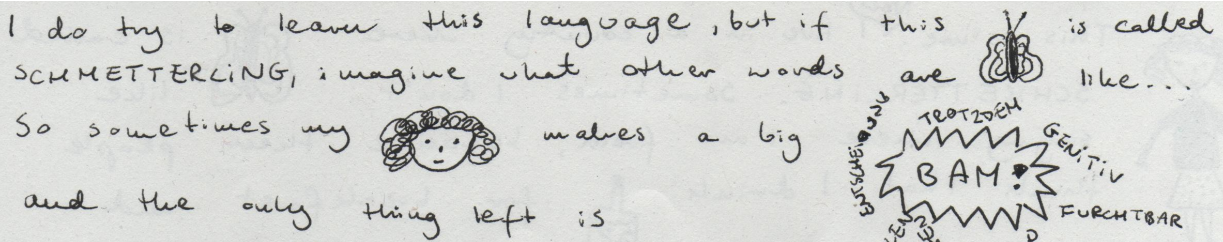 I do try to learn this language, but if this is called
SCHMETTERLING, imagine what other words are like...
So sometimes my makes a big
TROTZDEM
GENITIV
BAM!
FURCHTBAR
and the only thing left is